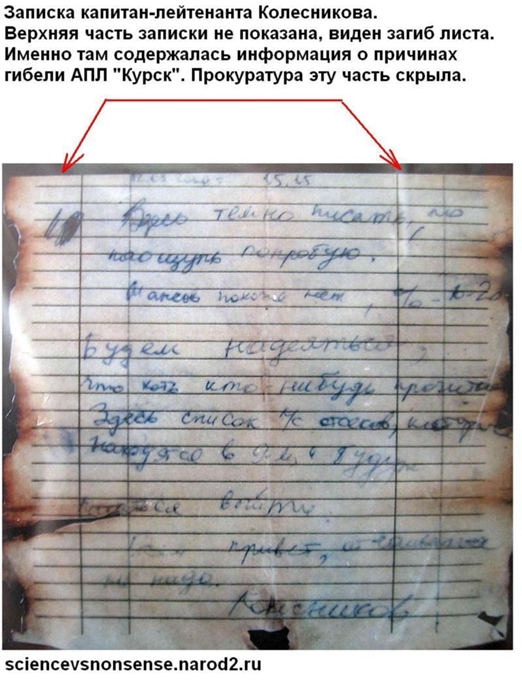 Записка капитан-лейтенанта Колесникова.
Верхняя часть записки не показана, виден загиб листа.
Именно там содержалась информация о причинах
гибели АПЛ "Курск". Прокуратура эту часть скрыла.
15.15
Здесь темно писать, но
наощупь попробую.
Шансов похоже нет, % - 10-20
Будем надеяться,
что хоть кто-нибудь прочитает
Здесь список л/с отсеков, которые
находятся в 9-м и будут
выйти.
привет, отчаиваться
не надо.
Колесников
sciencevsnonsense.narod2.ru